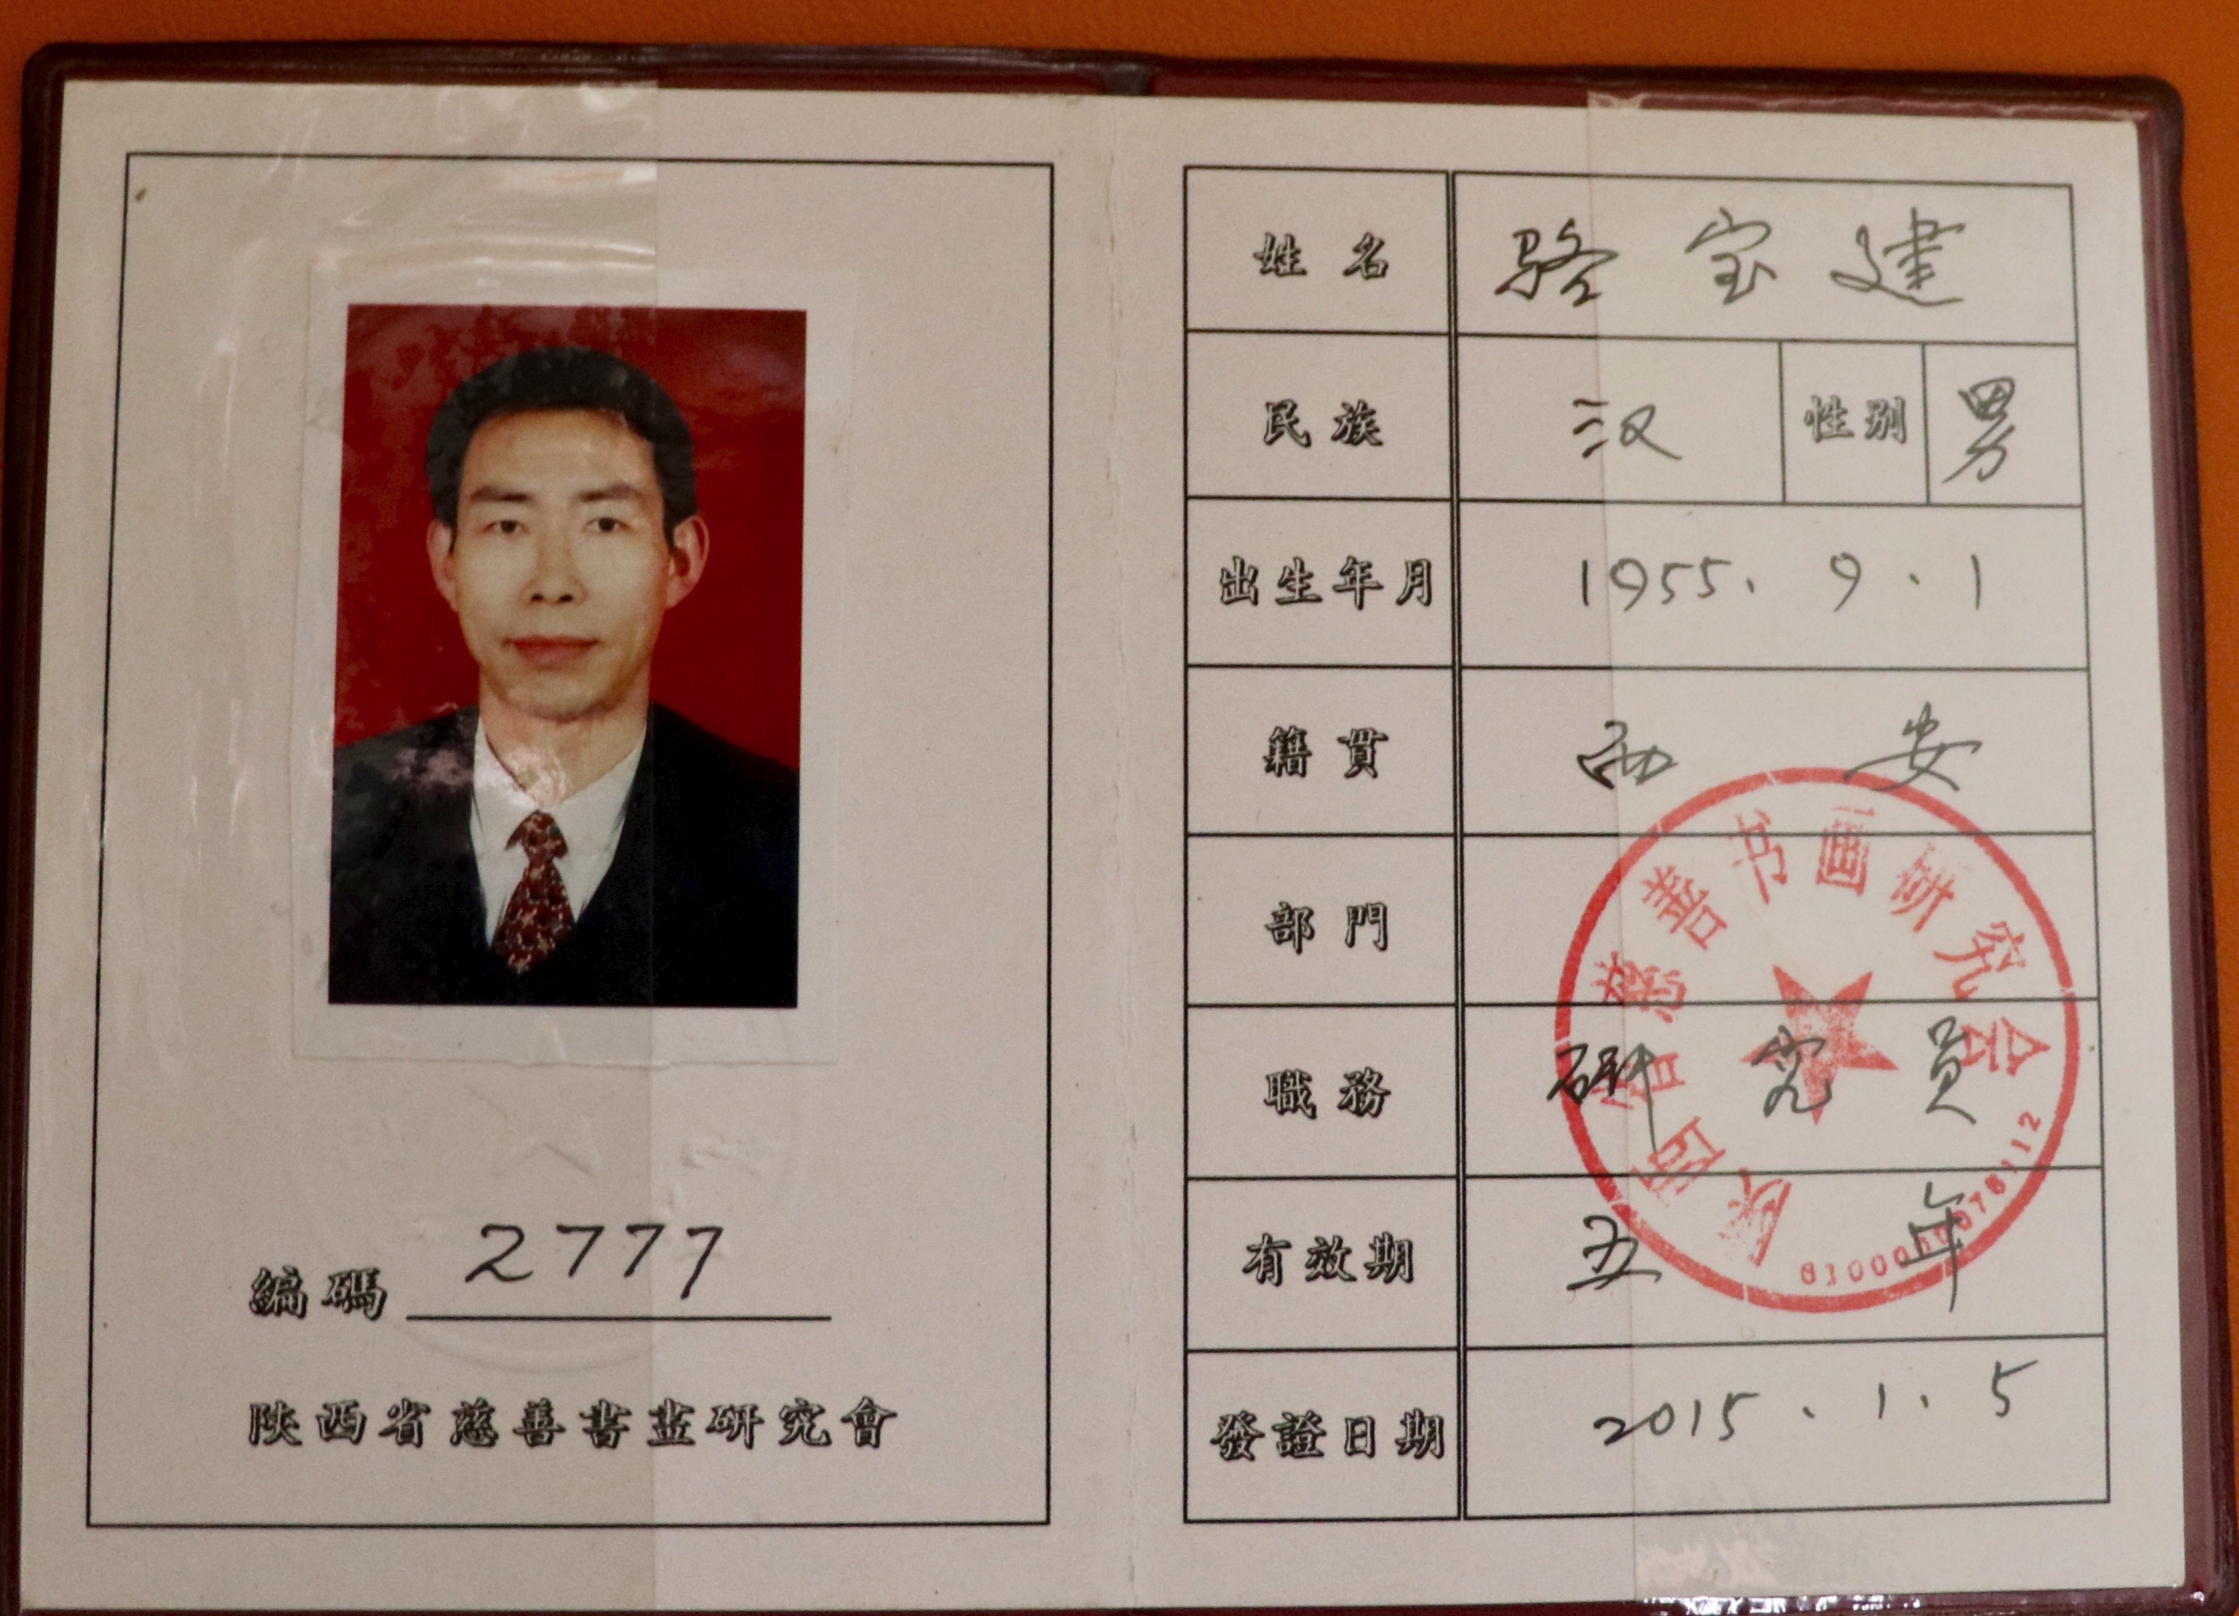 編碼 2777
陝西省慈善書畫研究會
姓名 骆宝建
民族 汉 性别 男
出生年月 1955.9.1
籍貫 西安
部門
職務 研究員
有效期 五年
發證日期 2015.1.5
陕西省慈善书画研究会